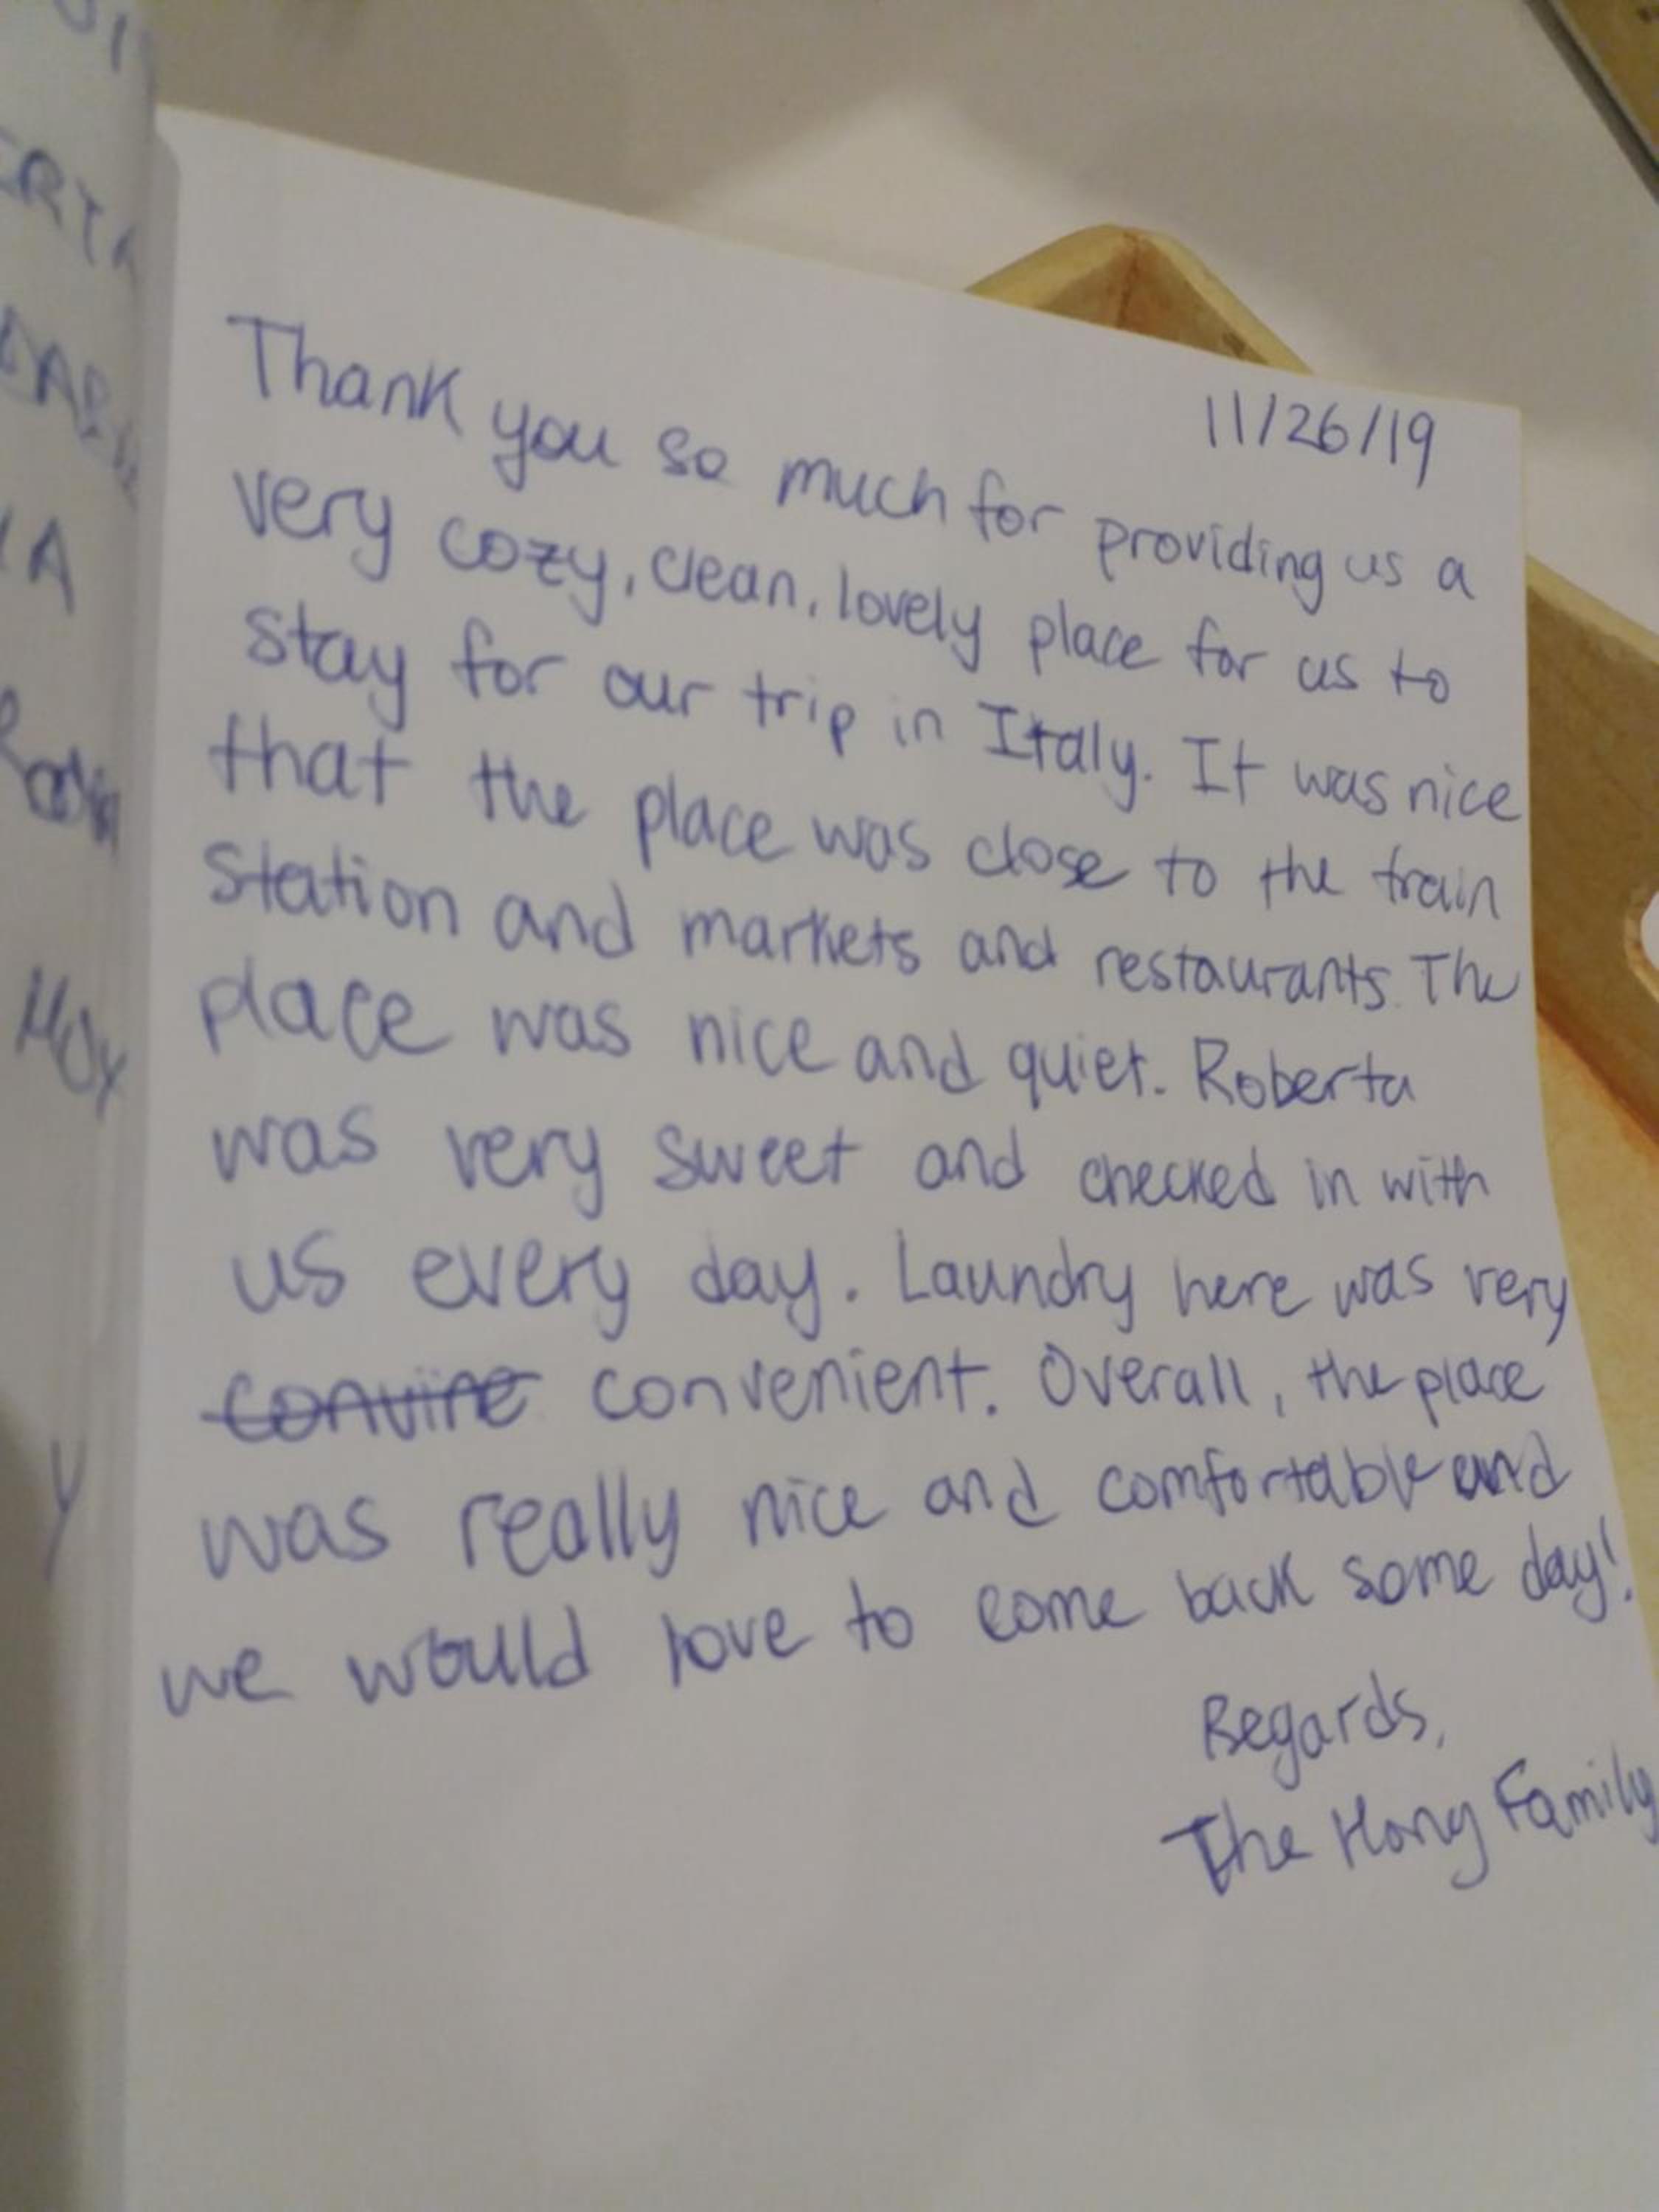 11/26/19
Thank you so much for providing us a
very cozy, clean, lovely place for us to
stay for our trip in Italy. It was nice
that the place was close to the train
station and markets and restaurants. The
place was nice and quiet. Roberta
was very sweet and checked in with
us every day. Laundry here was very
convine convenient. Overall, the place
was really nice and comfortable and
we would love to come back some day!
Regards,
The Hong Family